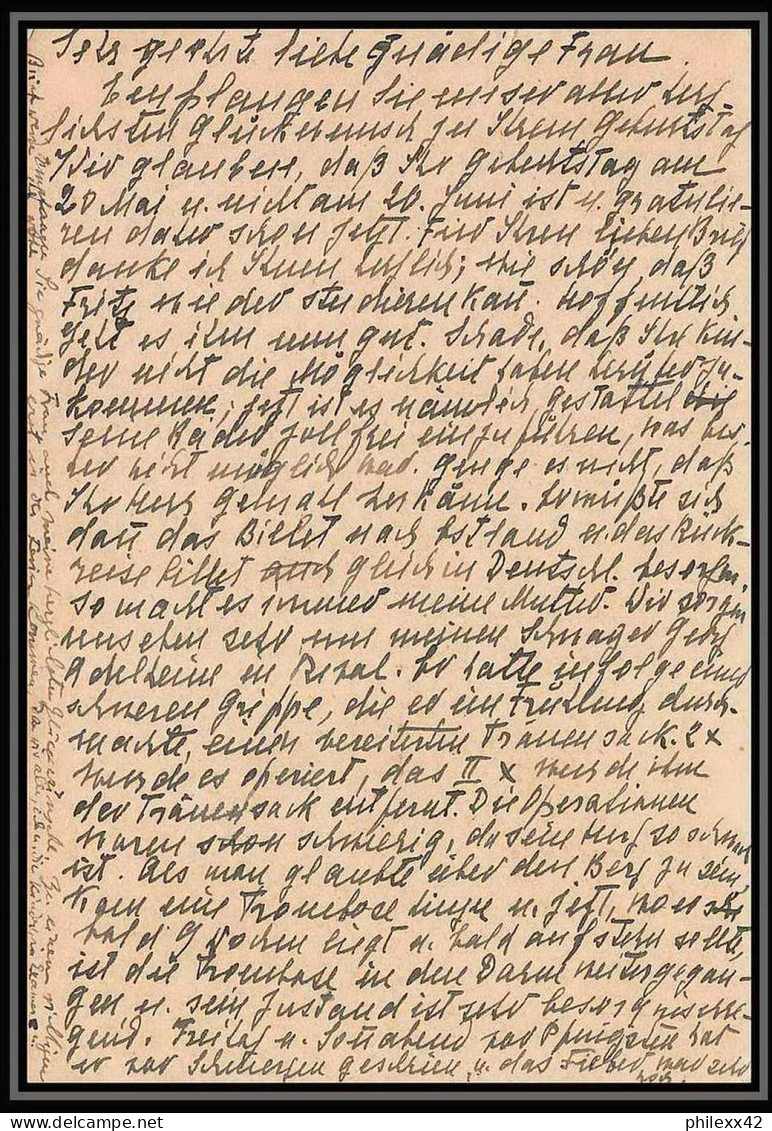 Sehr geehrte liebe gnädige Frau.
Empfangen Sie unser aller herz
lichsten Glückwunsch zu Ihrem Geburtstag
Wir glauben, daß Ihr Geburtstag am
20 Mai u. nicht am 20. Juni ist u. gratulie-
ren daher schon jetzt. Für Ihren lieben Brief
danke ich Ihnen herzlich; wie schön, daß
Fritz wieder studieren kann. Hoffentlich
geht es ihm nun gut. Schade, daß Ihre Kin-
der nicht die Möglichkeit haben herüber zu-
kommen; jetzt ist es nämlich gestattet
seine Räder zollfrei einzuführen, was bis-
her nicht möglich war. Ginge es nicht, daß
Ihr Herr Gemahl herkäme. Er müßte sich
dann das Billet nach Estland u. das Rück-
reisebillet gleich in Deutschl. besorgen,
so macht es immer meine Mutter. Wir sorgen
uns eben sehr um meinen Schwager Georg
Adelheim in Reval. Er hatte infolge einer
schweren Grippe, die er im Frühling durch-
machte, einen vereiterten Tränensack. 2 x
wurde es operiert, das II x wurde ihm
der Tränensack entfernt. Die Operationen
waren schon schwierig, da sein Herz so schwach
ist. Als man glaubte über den Berg zu sein,
kam eine Trombose hinzu u. jetzt, wo er
bald 9 Wochen liegt u. bald aufstehen sollte,
ist die Trombose in den Darm weitergegan-
gen u. sein Zustand ist sehr besorgniserre-
gend. Freitag u. Sonnabend vor Pfingsten hat
er vor Schmerzen geschrien, u. das Fieber war sehr
hoch.
Empfangen Sie gnädige Frau auch meine herzlichsten Glückwünsche zu Ihrem
erst in den Ferien kommen, da wir alle, d.h. die Kinder
philexx42